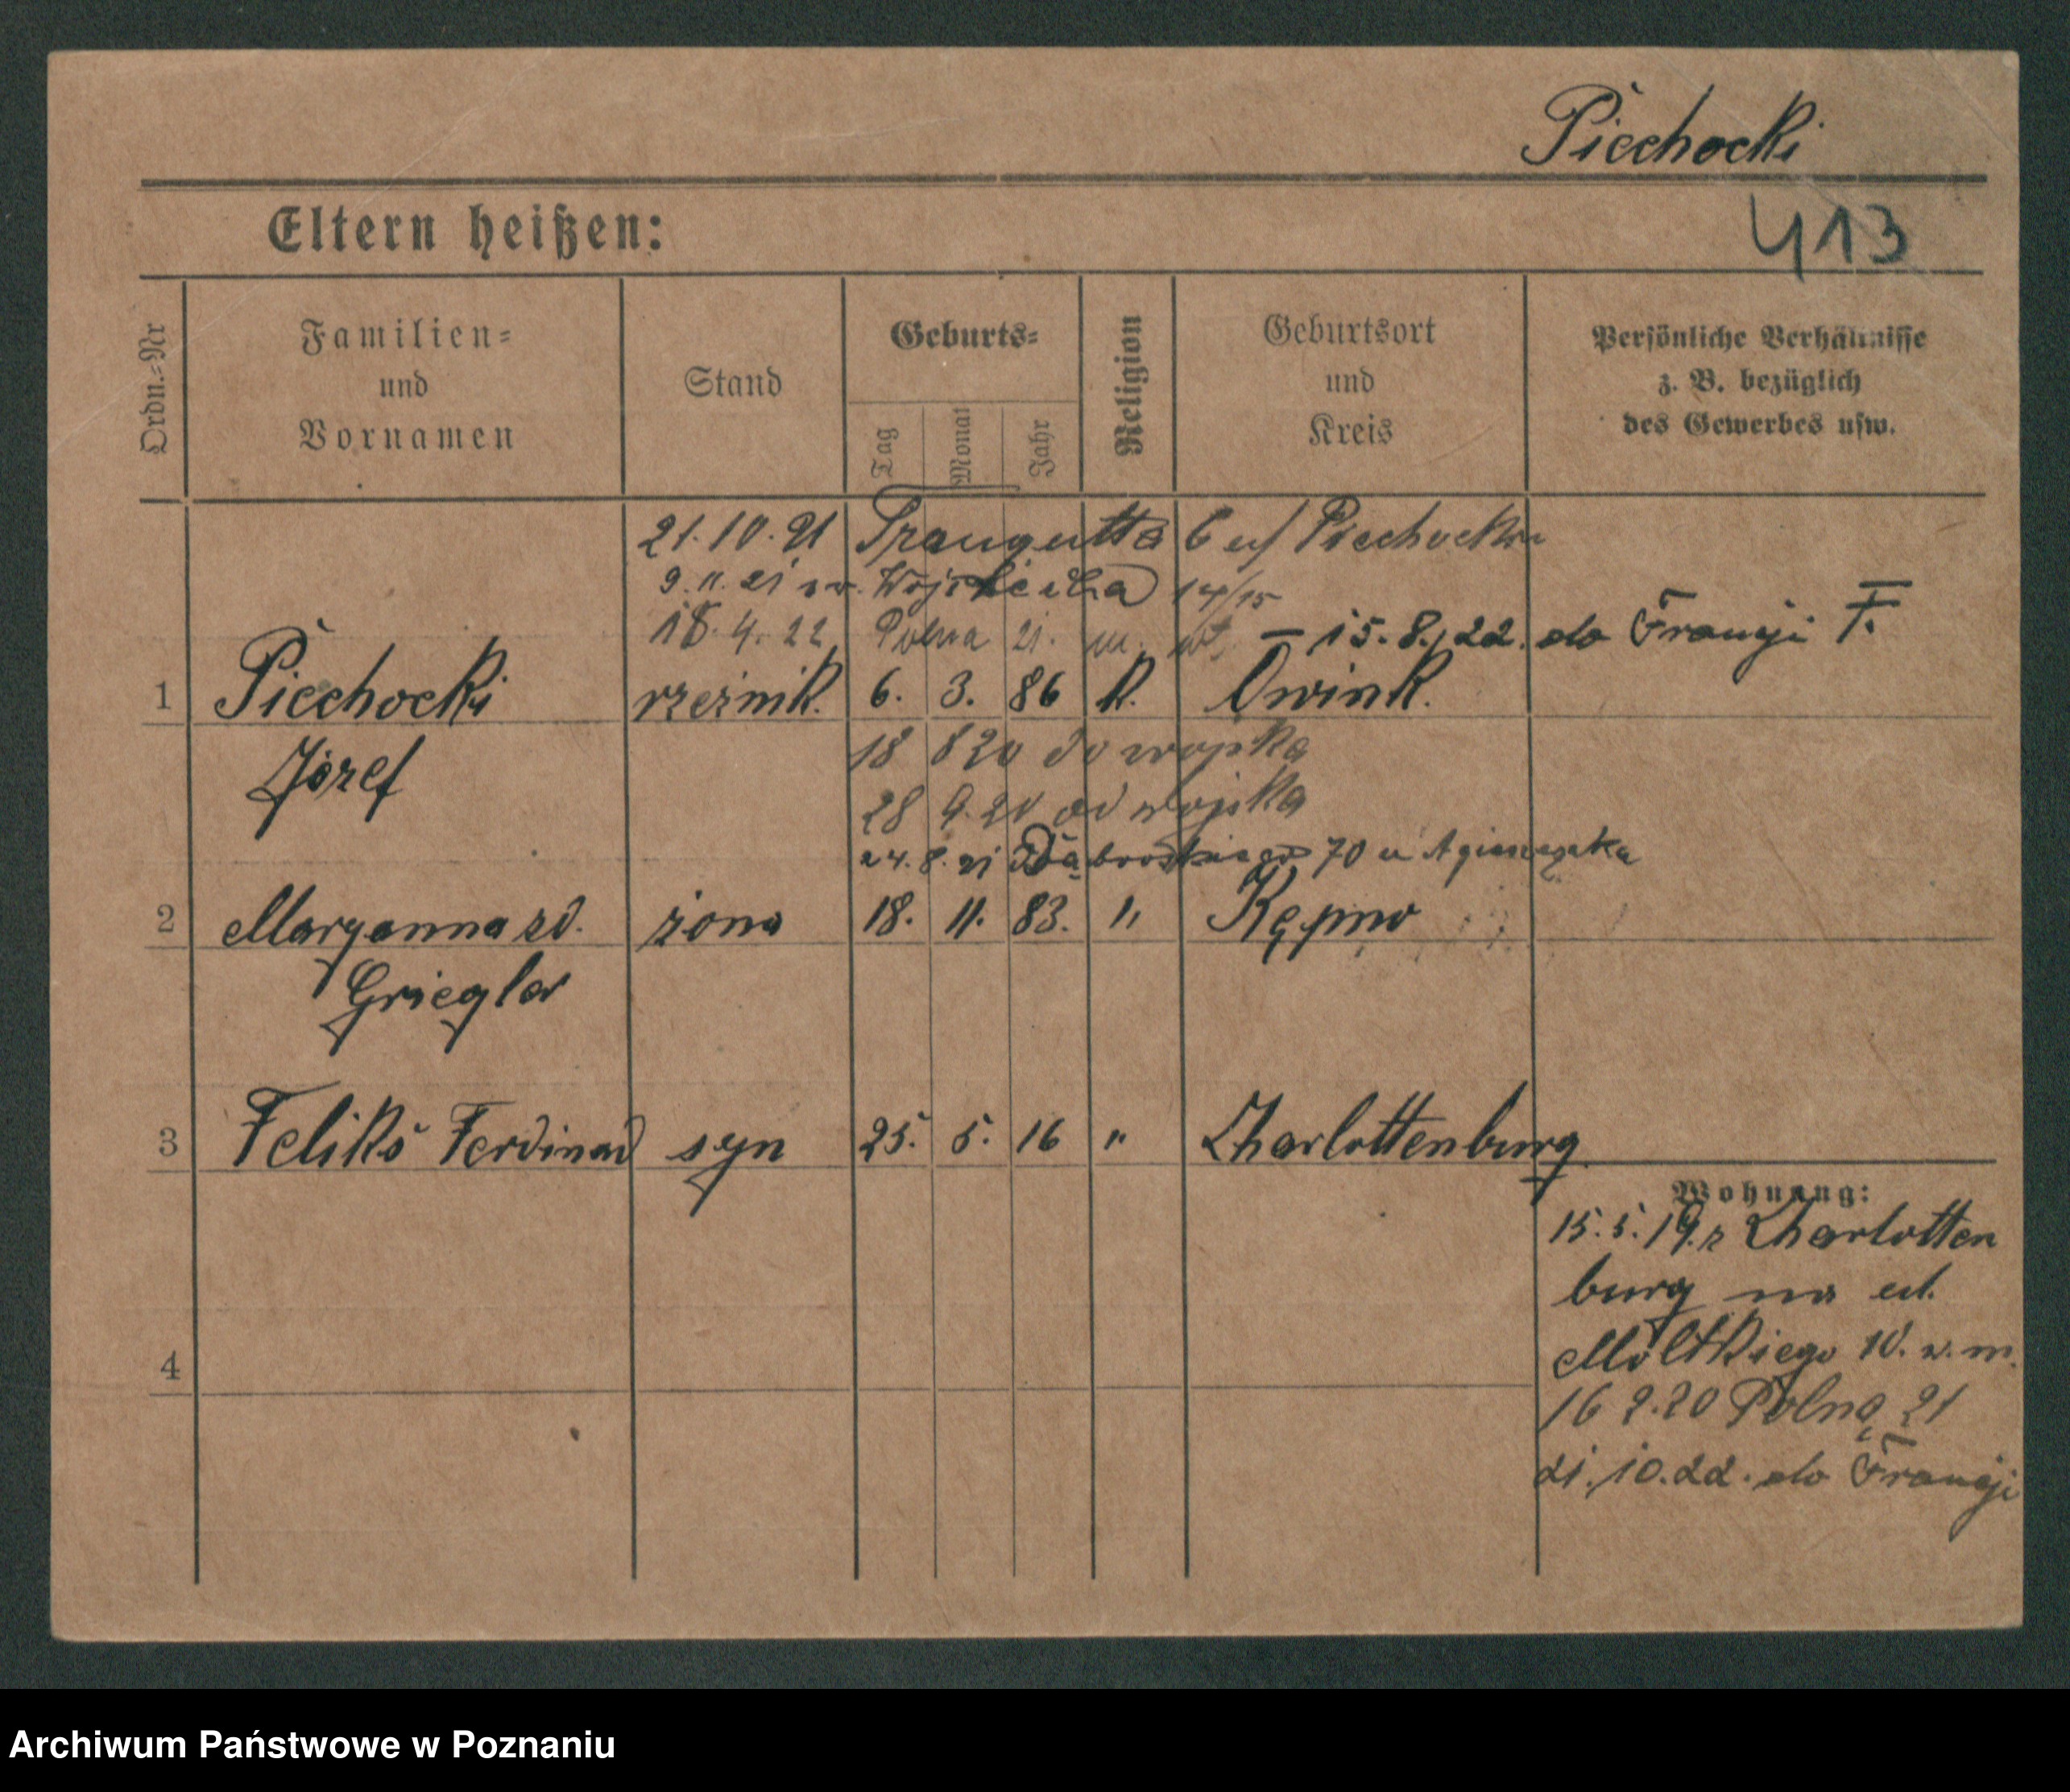 Piechocki
Eltern heißen:
413
Ordn.-Nr
Familien-
und
Vornamen
Stand
Geburts-
Tag
Monat
Jahr
Religion
Geburtsort
und
Kreis
Persönliche Verhältnisse
z. B. bezüglich
des Gewerbes usw.
21.10.21 Traugutta 6 u/ Piechocki
9.11.21 św. Wojciecha 14/15
18.4.22 Polna 21. m. — 15.8.22. do Francji F.
1 Piechocki rzeźnik. 6. 3. 86 k. Owink.
Józef
18 8 20 do wojska
28 9.20 od wojska
24.8.21 Dąbrowskiego 70 u
2 Maryanna zd. żona 18. 11. 83. " Kępno
Griegler
3 Feliks Ferdinand syn 25. 5. 16 " Charlottenburg
Wohnung:
15.5.19. z Charlotten
burg na ul.
4 Moltkiego 10. w. m.
16 2.20 Polna 21
21.10.22. do Francji
Archiwum Państwowe w Poznaniu